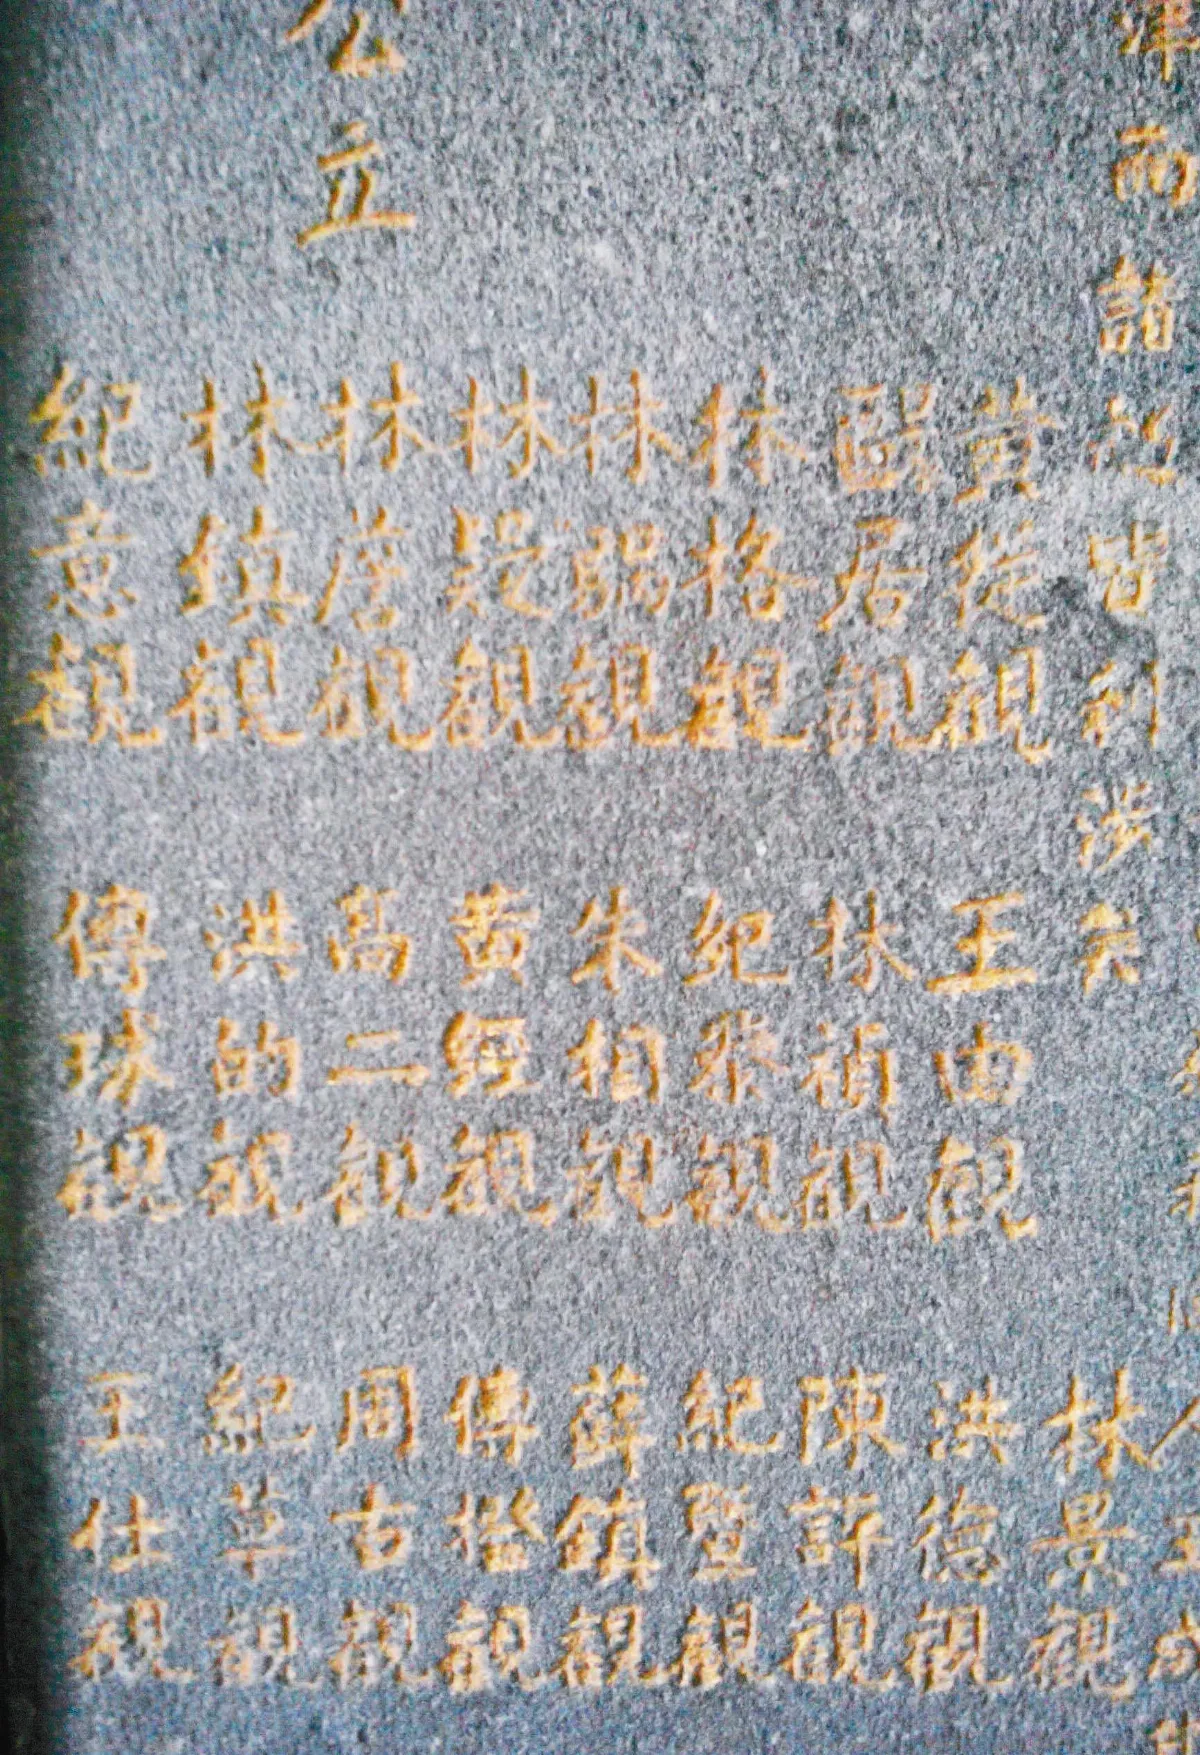 津而諸
皆利涉矣
黃從觀
居觀
林格觀
林觀
林疑觀
林唐觀
林鎮觀
紀意觀
王由觀
林禎觀
紀黎觀
朱相觀
黃經觀
高二觀
洪的觀
傅球觀
林景觀
洪德觀
陳許觀
紀暨觀
薛鎮觀
傅觀
周古觀
紀草觀
王仕觀
公立